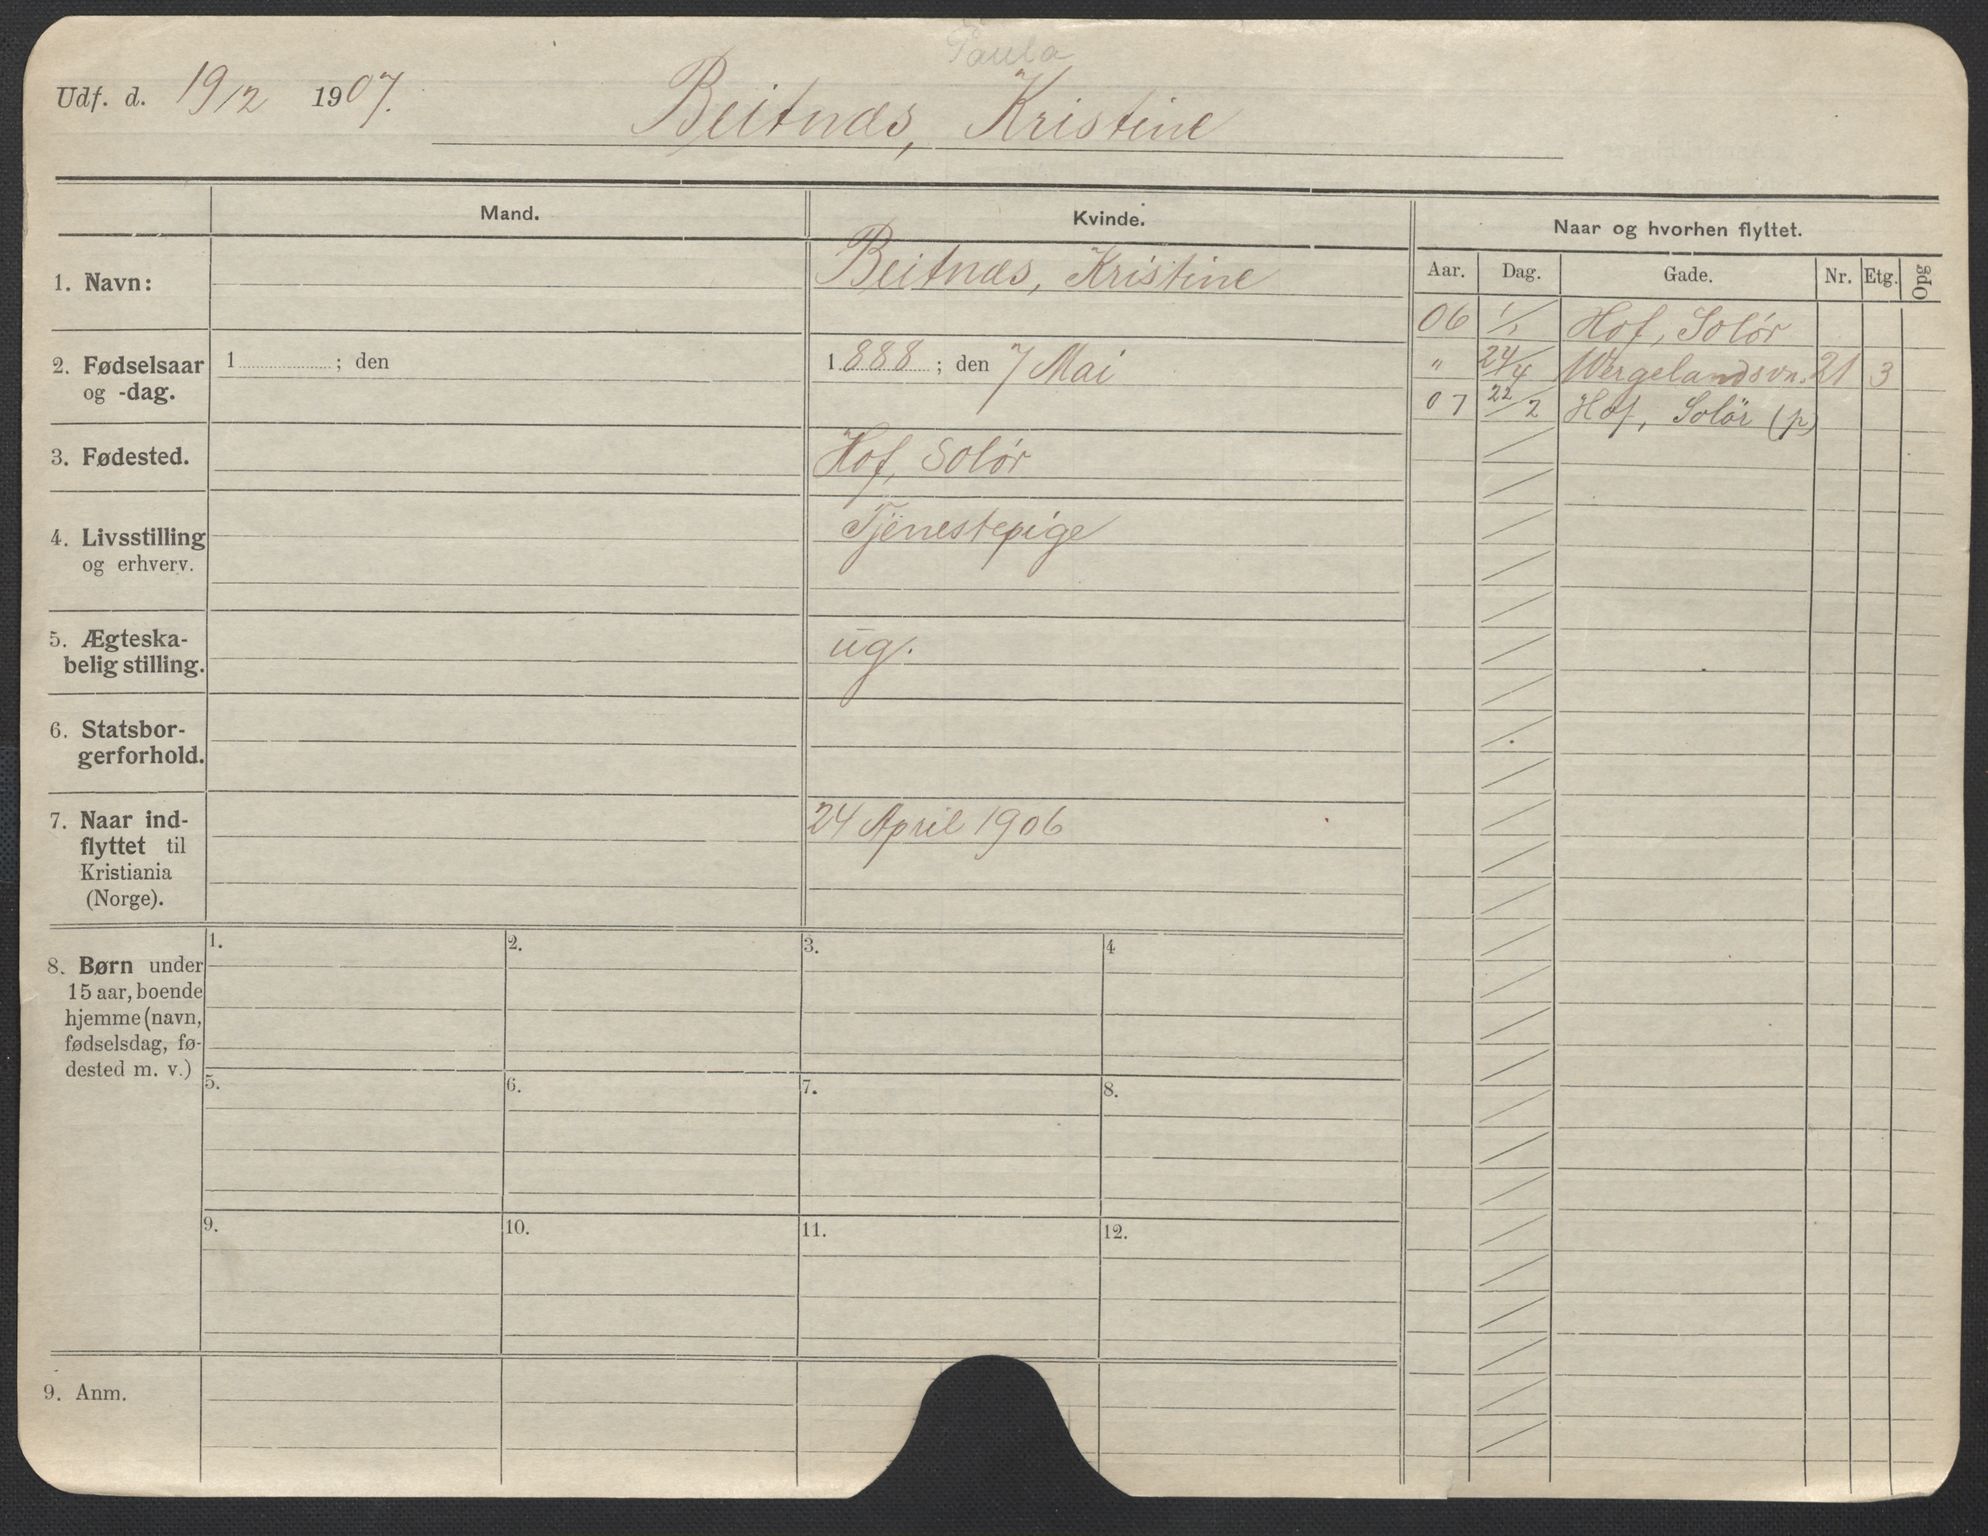 Paula
Udf. d. 19/2 1907. Beitnæs, Kristine
Mand. Kvinde. Naar og hvorhen flyttet.
Aar. Dag. Gade. Nr. Etg. Opg
1. Navn: Beitnæs, Kristine
06 1/1 Hof, Solør
2. Fødselsaar 1 ; den 1888 ; den 7 Mai
og -dag.
" 24/4 Wergelandsvn. 21 3
07 22/2 Hof, Solör (p)
3. Fødested. Hof, Solör
4. Livsstilling Tjenestepige
og erhverv.
5. Ægteska-
belig stilling. ug.
6. Statsbor-
gerforhold.
7. Naar ind- 24 April 1906
flyttet til
Kristiania
(Norge).
8. Børn under
15 aar, boende
hjemme (navn,
fødselsdag, fø-
dested m. v.)
1. 2. 3. 4
5. 6. 7. 8.
9. 10. 11. 12.
9. Anm.